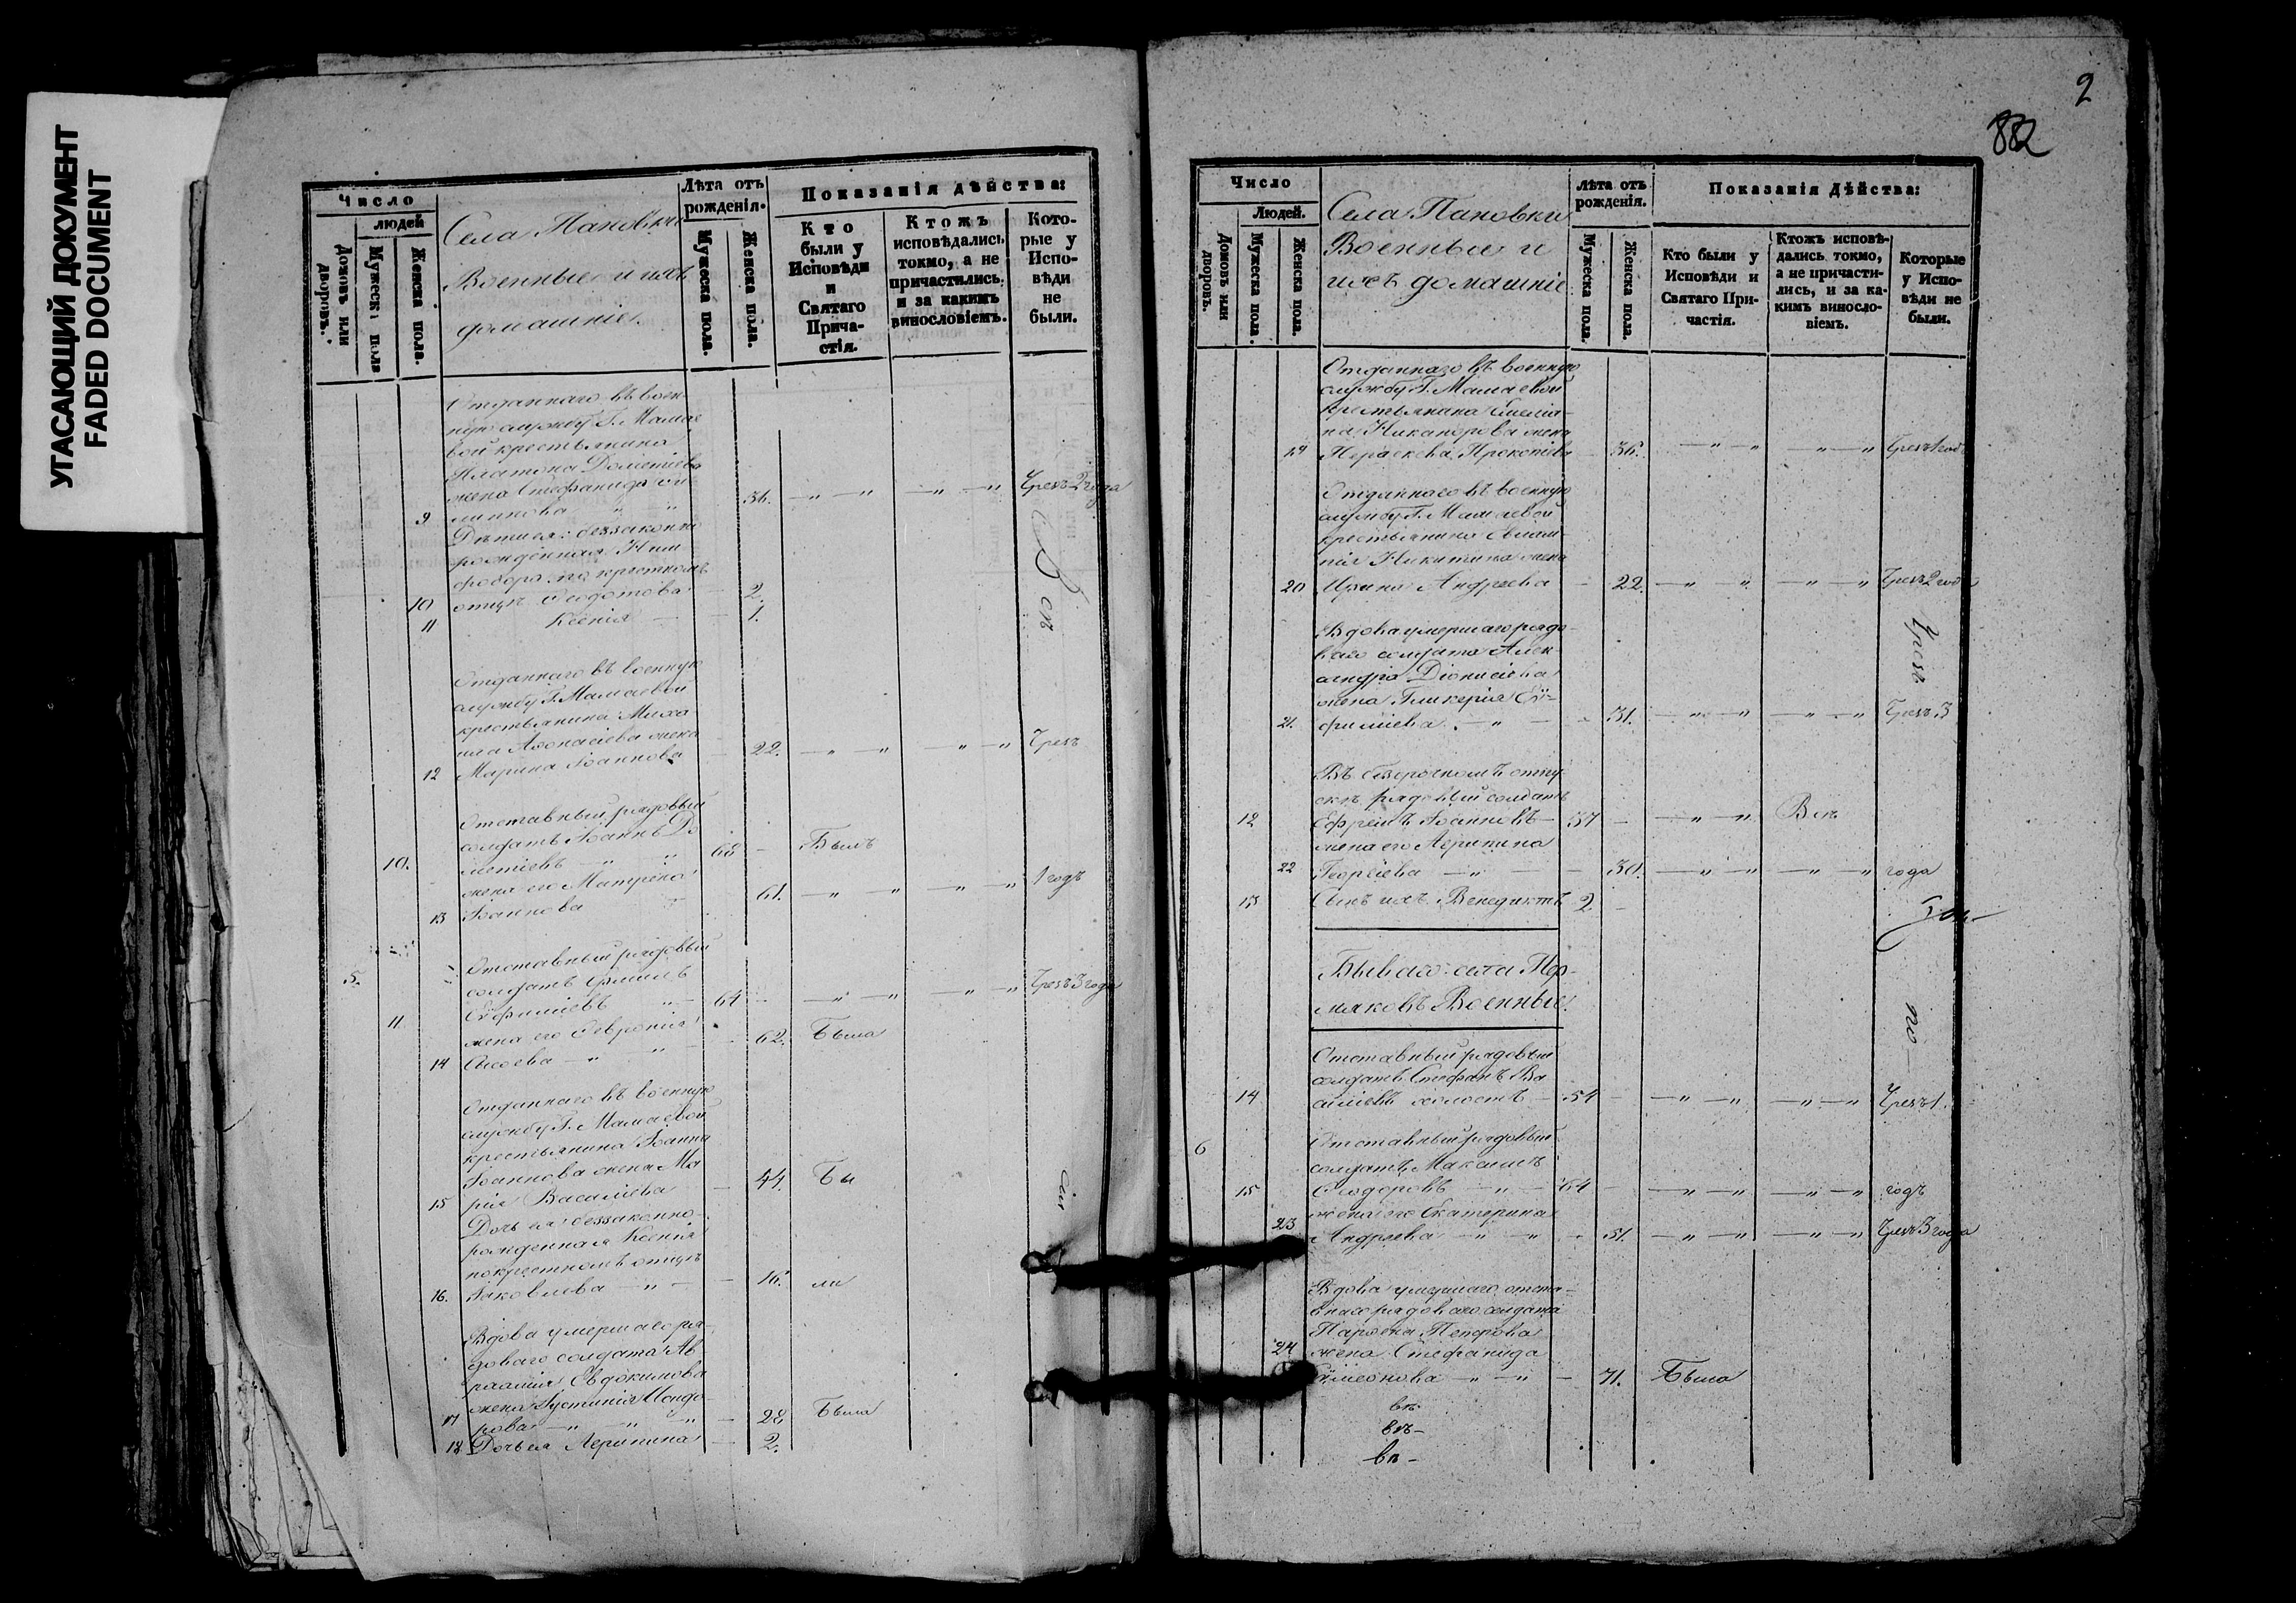 УГАСАЮЩИЙ ДОКУМЕНТ
FADED DOCUMENT
Число
людей
Домовъ или дворовъ.
Мужеска пола
Женска пола.
Села Пановки
Военные и ихъ
домашніе.
Лѣта отъ
рожденія.
Мужеска пола.
Женска пола.
Показанія дѣйства:
Кто
были у
Исповѣди
и
Святаго
Прича-
стія.
Ктожъ
исповѣдались
токмо, а не
причастились,
и за какимъ
винословіемъ.
Кото-
рые у
Испо-
вѣди
не
были.
Отданнаго въ воен-
ную службу Г. Мамае
вой крестьянина
Платона Дометіева
жена Стефанида
9 36. Чрезъ 2 года
Дѣти ея: беззаконно
рожденная
по крестному
10 отцѣ Ѳеодотова 2.
11 Ксенія 1.
Отданнаго въ военную
службу Г. Мамаевой
крестьянина Миха
ила Аѳонасіева жена
12 Марина Іоаннова 22. Чрезъ
Отставный рядовый
солдатъ Іоаннъ До
10. метіевъ 68 Былъ
жена его Матрена
13 Іоаннова 61. 1 годъ
Отставный рядовый
5. солдатъ
11 Евфиміевъ 64 Чрезъ 3 года
жена его Февронія
14 Сысоева 62. Была
Отданнаго въ военную
службу Г. Мамаевой
крестьянина Іоанна
Іоаннова жена Ма
15 рія Василіева 44. Бы
Дочь ея беззаконно-
рожденная Ксенія
по крестномъ отцѣ
16. Яковлева 16. ли
Вдова умершаго ря-
доваго солдата Ав
раамія Евдокимова
жена Іустинія Исидо
17 рова 28 Была
18 Дочь ея Агрипина 2.
2
882
Число
Людей.
Домовъ или дворовъ.
Мужеска пола.
Женска пола.
Села Пановки
Военные и
ихъ домашніе
лѣта отъ
рожденія.
Мужеска пола.
Женска пола.
Показанія дѣйства:
Кто были у
Исповѣди и
Святаго При-
частія.
Ктожъ исповѣ-
дались токмо,
а не причасти-
лись, и за ка-
кимъ винросло-
віемъ.
Которые
у Испо-
вѣди не
были.
Отданнаго въ военную
службу Г. Мамаевой
крестьянина Емелія-
на Никанорова жена
19 Параскева Прокопіева 36. Чрезъ 1 годъ
Отданнаго въ военную
службу Г. Мамаевой
крестьянина
Никитина жена
20 Ирина Андреева 22. Чрезъ 2 года
Чрезъ
Вдова умершаго рядо-
ваго солдата Алек-
сандра Діонисіева
жена Гликерія Ев-
21. фиміева 31. Чрезъ 3
Въ безсрочномъ отпу-
скѣ рядовый солдатъ
12 Ефремъ Іоанновъ 37 Всѣ
жена его Агрипина
22 Георгіева 30. года
13 Сынъ ихъ Венедиктъ 2
Бывшаго села Пер-
мяковъ Военные.
по
Отставный рядовый
солдатъ Стефанъ Ва
14 силіевъ холостъ 54 Чрезъ 1.
6 Отставный рядовый
солдатъ Максимъ
15 Ѳеодоровъ 64 годъ
жена его Екатерина
23 Андреева 51. Чрезъ 3 года
Вдова умершаго отста-
внаго рядоваго солдата
Парѳена Петрова
24 жена Стефанида
Сѵмеонова 71. Была